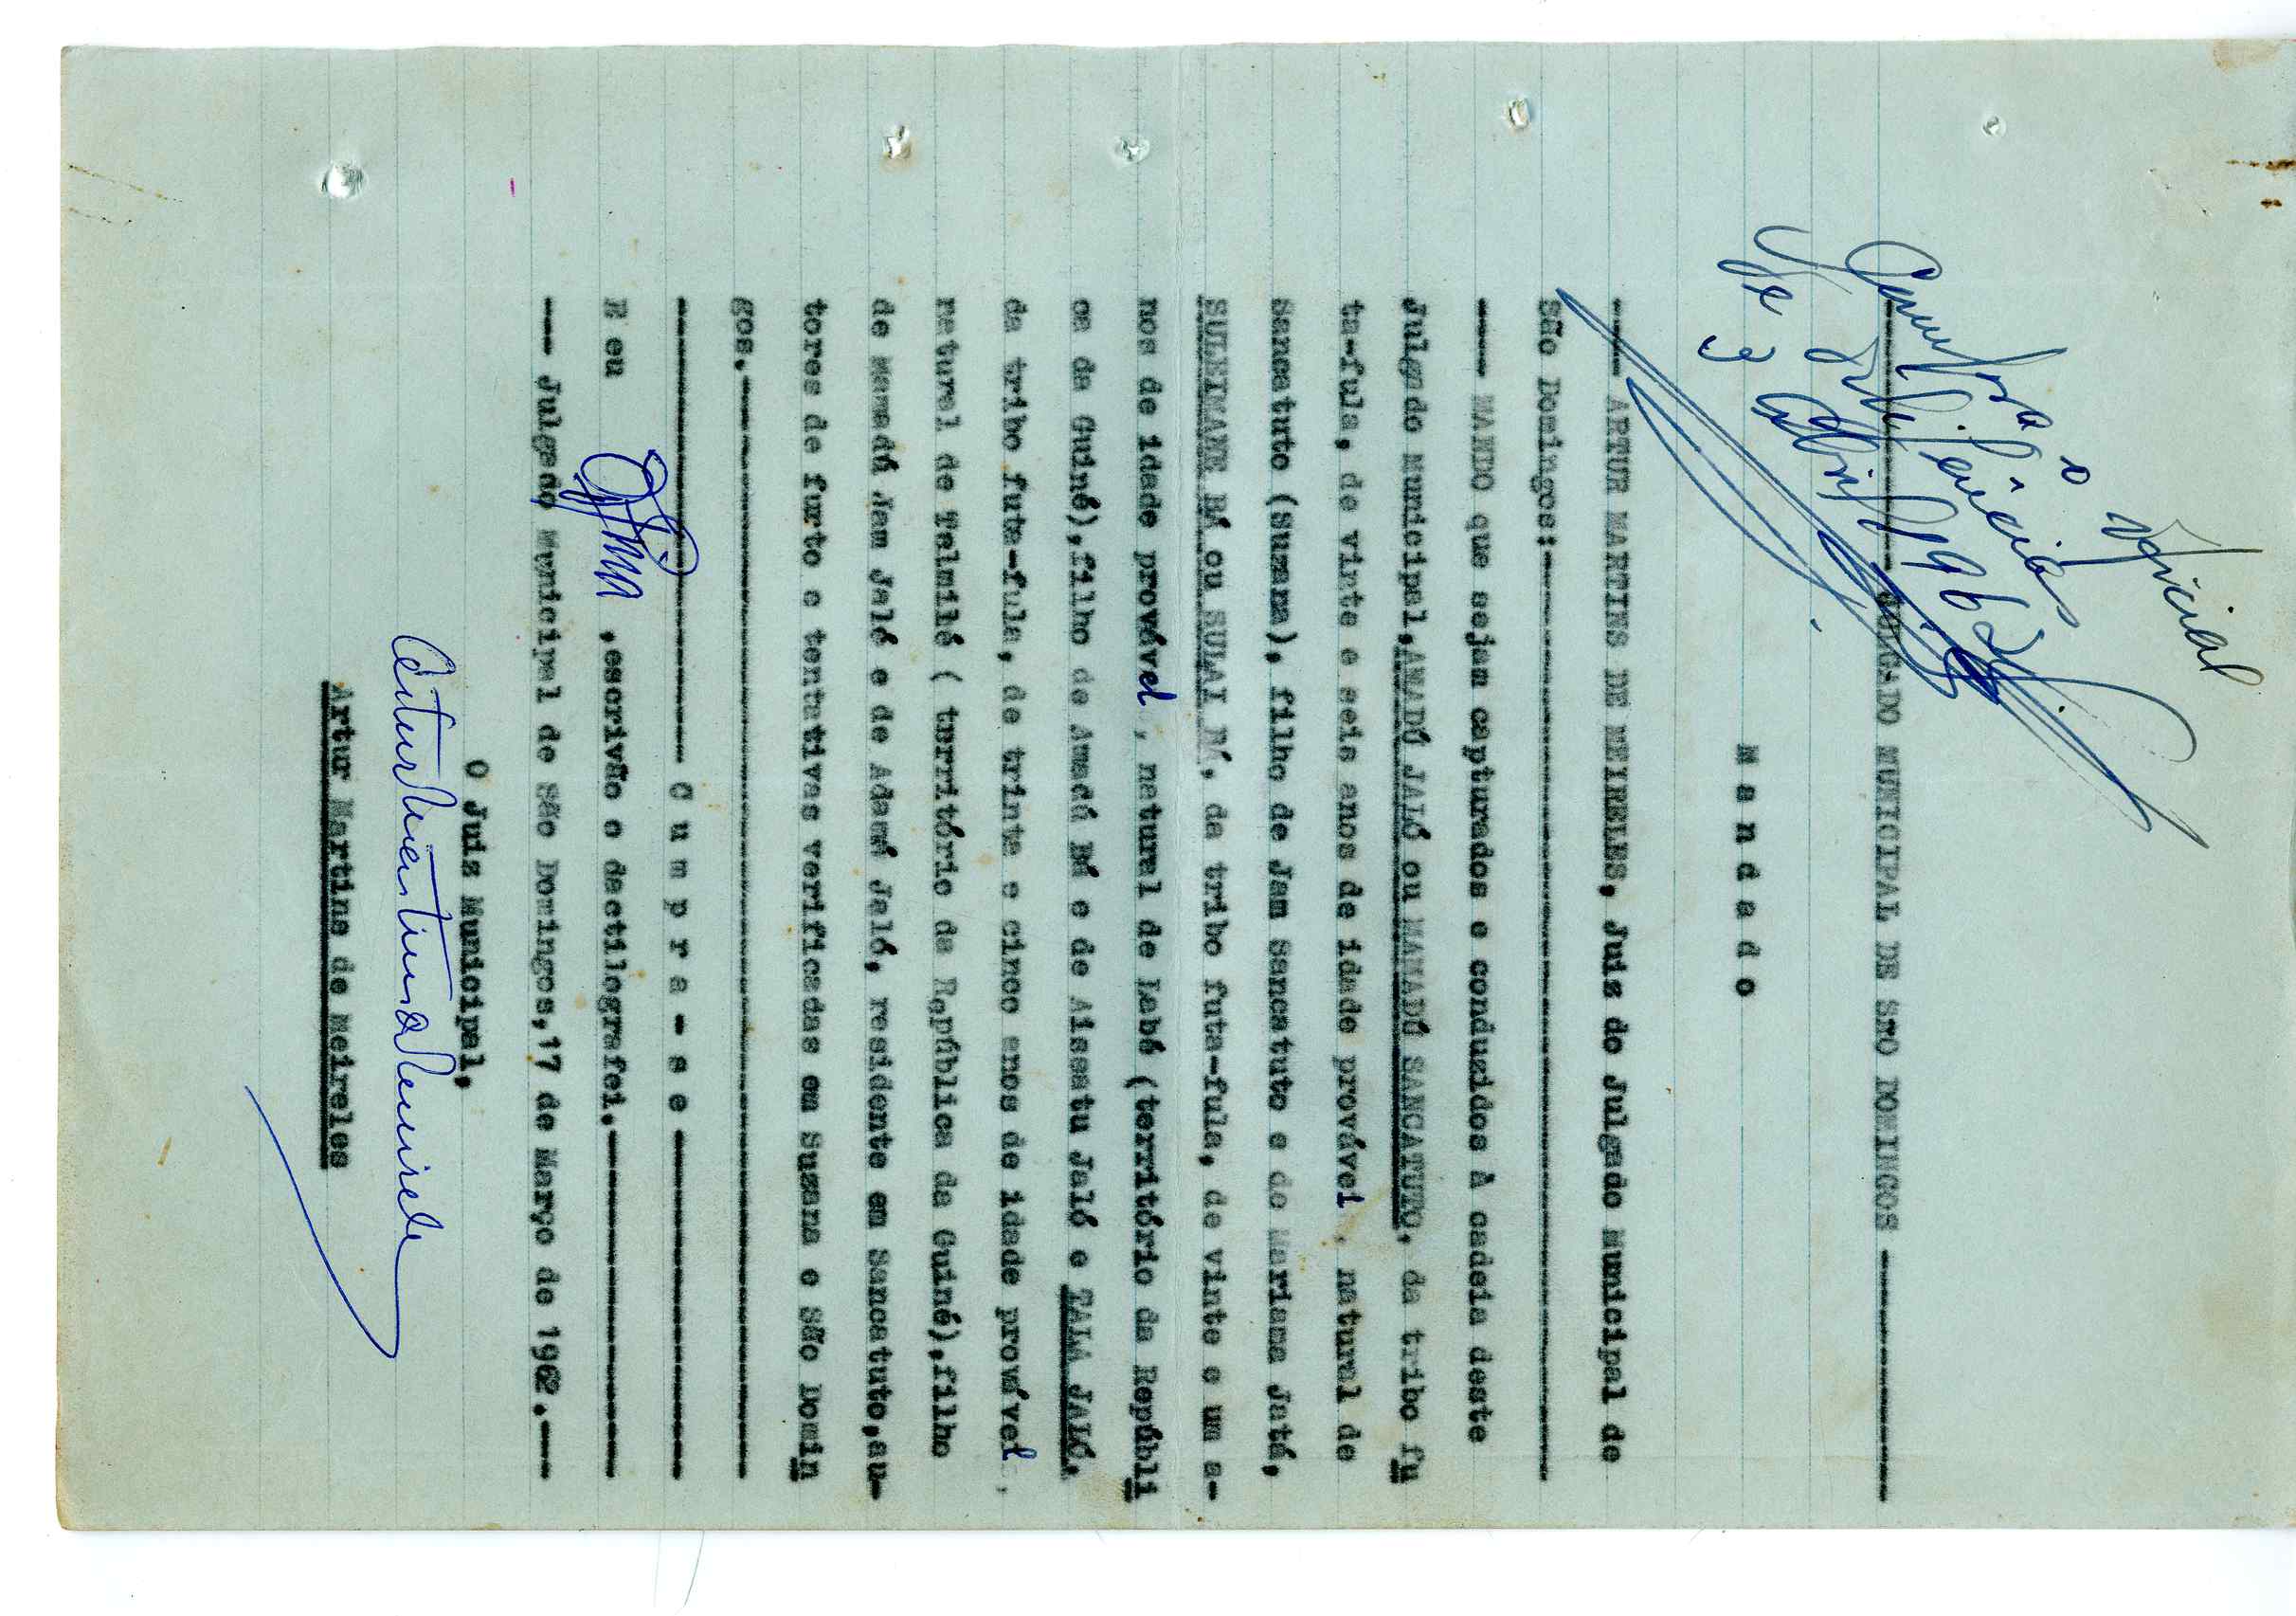 Cumpra o oficial
de diligências
3 Abril 1962
---------- JULGADO MUNICIPAL DE SÃO DOMINGOS ----------
M a n d a d o
---- ARTUR MARTINS DE MEIRELES, Juiz do Julgado Municipal de
São Domingos:----------
---- MANDO que sejam capturados e conduzidos à cadeia deste
Julgado Municipal,AMADÚ JALÓ ou MAMADÚ SANCATUTO, da tribo fu
ta-fula, de vinte e seis anos de idade provável , natural de
Sancatuto (Suzana), filho de Jam Sancatuto e de Mariama Jatá,
SULEIMANE BÁ ou SULAI BÁ, da tribo futa-fula, de vinte e um a-
nos de idade provável , natural de Labé (território da Repúbli
ca da Guiné),filho de Amadú Bá e de Aissatu Jaló e TALA JALÓ,
da tribo futa-fula, de trinta e cinco anos de idade provável ,
natural de Telmilé ( território da República da Guiné),filho
de Mamadú Jam Jaló e de Adamá Jaló, residente em Sancatuto,au-
tores de furto e tentativas verificadas em Suzana e São Domin
gos.----------
---------- C u m p r a - s e ----------
E eu ,escrivão o dactilografei.----------
---- Julgado Municipal de São Domingos,17 de Março de 1962.----
O Juiz Municipal,
Artur Martins de Meireles
Artur Martins de Meireles